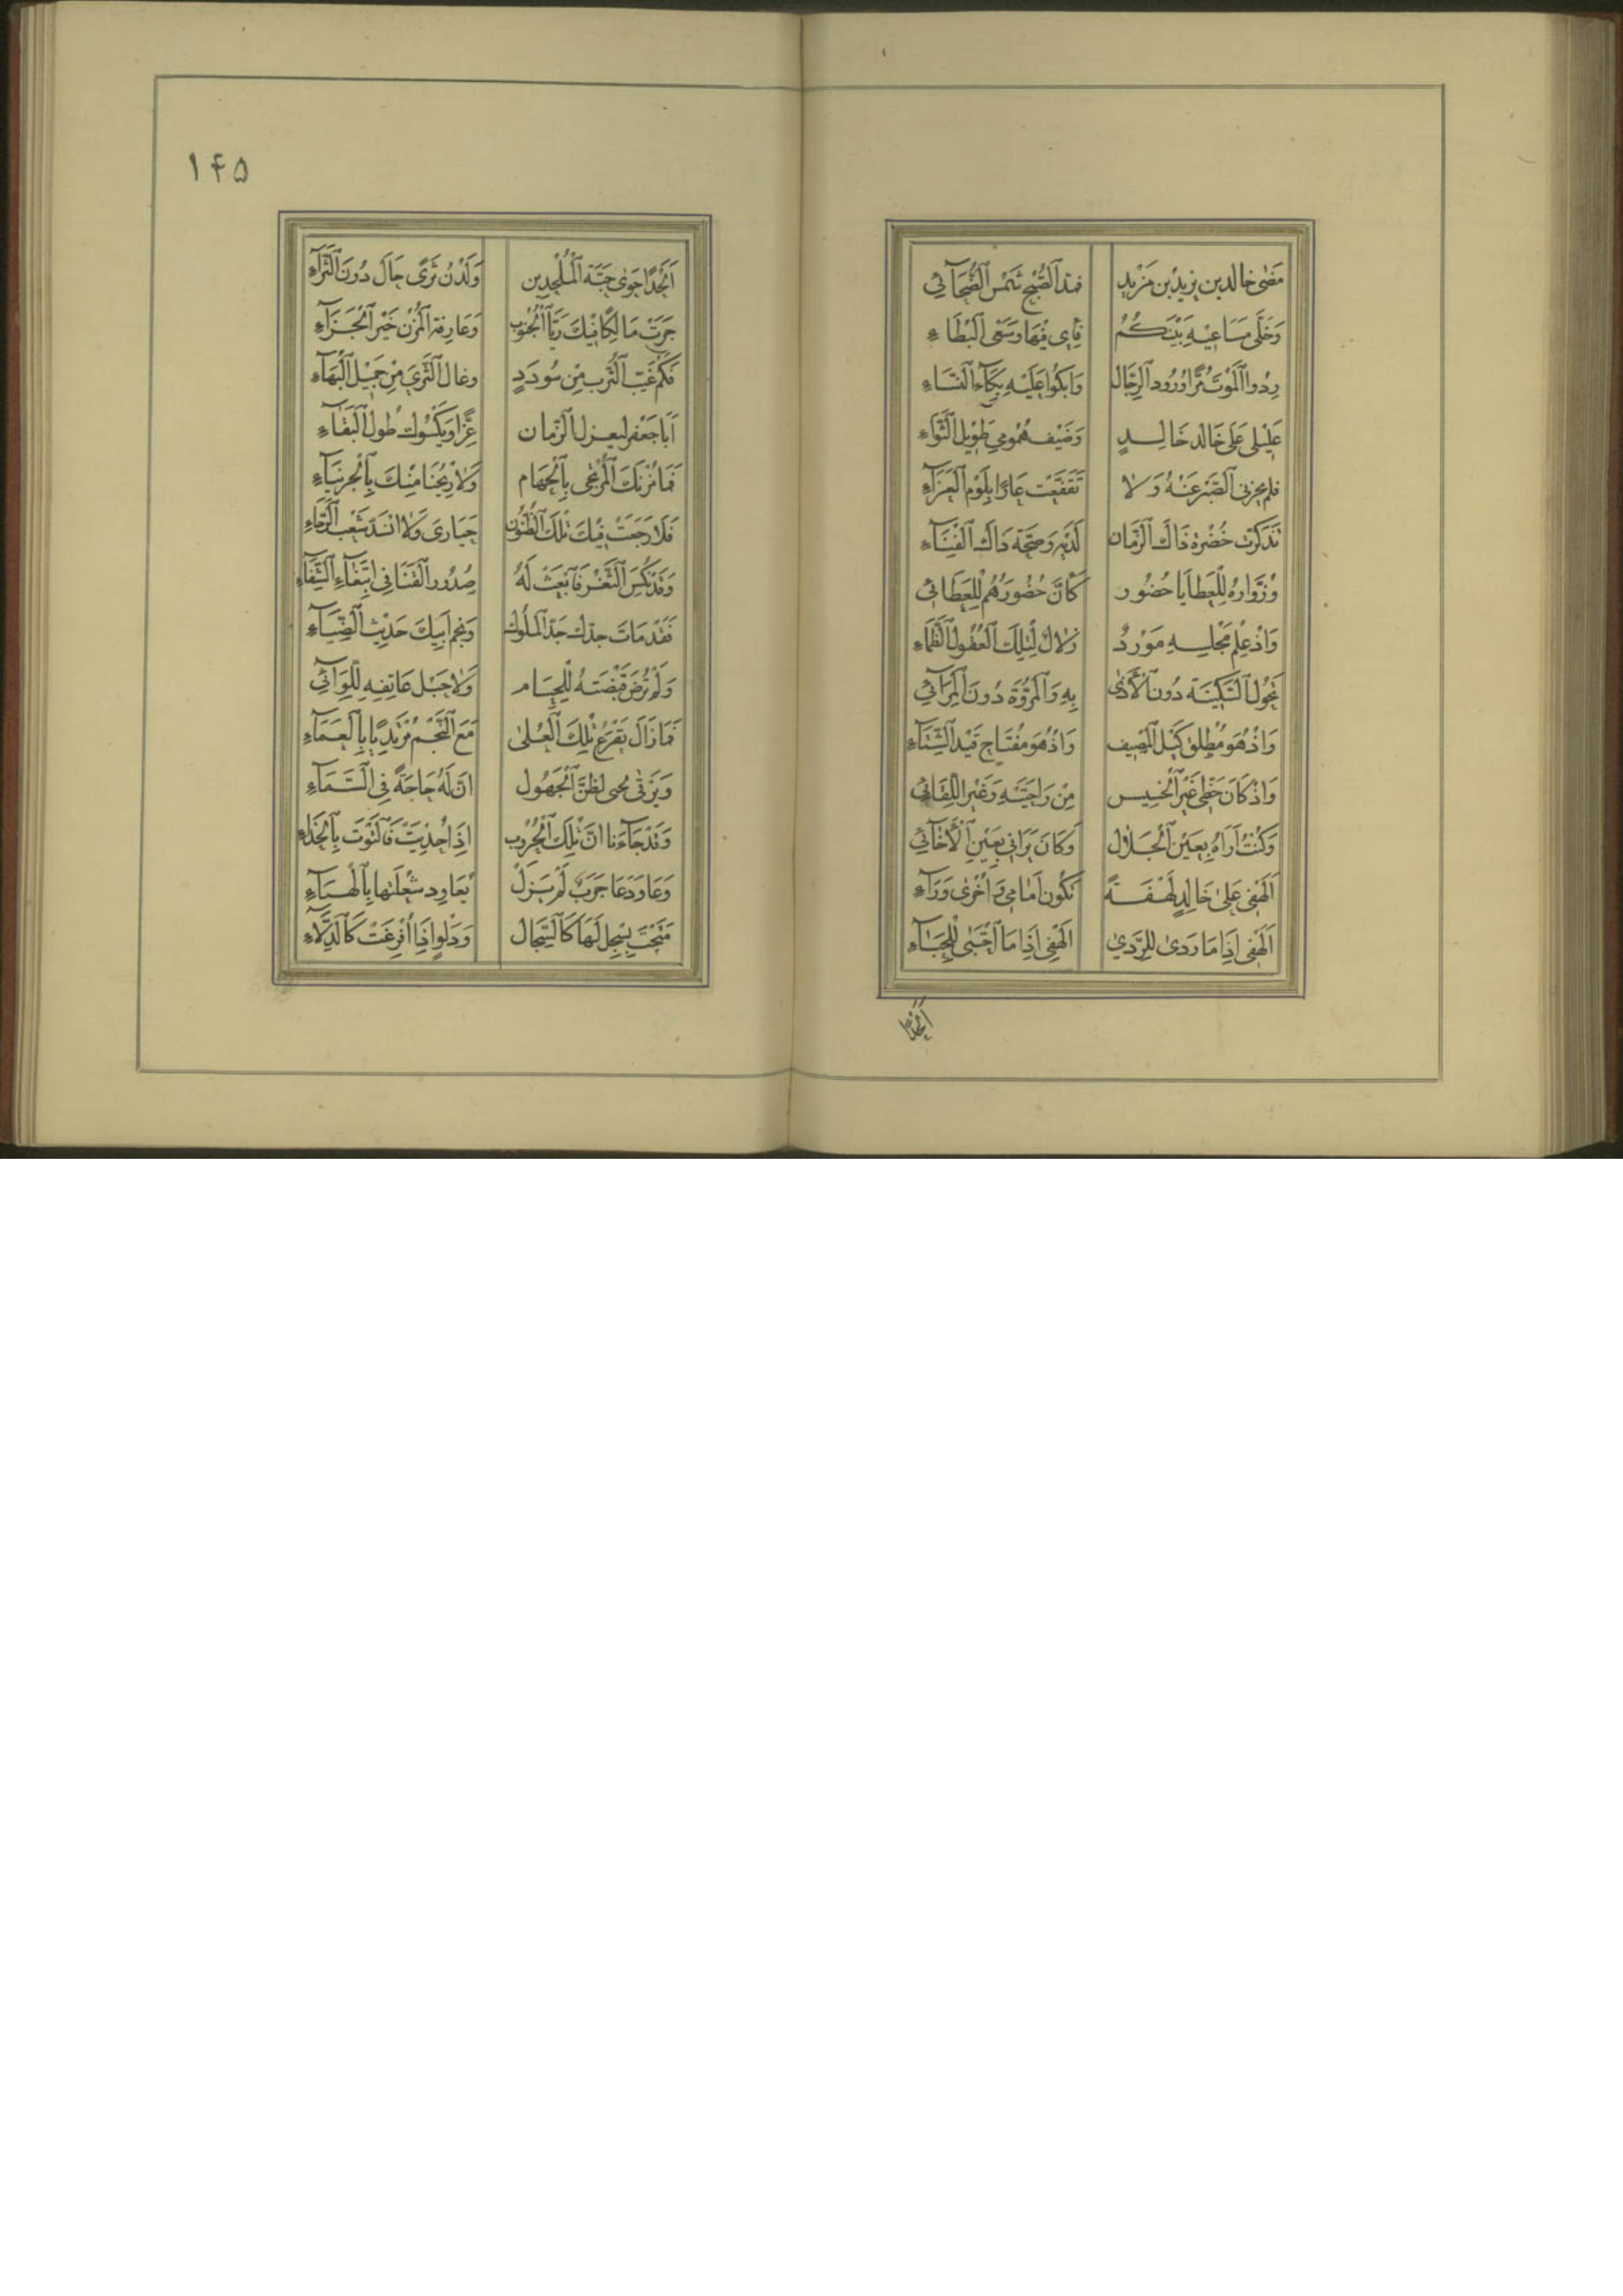 مَضٰى خالد بن يزيد بن مَزْيَدٍ قمَد اَلصُّبْحِ شَمْسُ اَلضُّحَآئِي
وَخَلّٰى مَسَاعِيْهِ بَيْنَكُمُ فَاِى فِيْهَا وَسَعْى اَلبُطَاءِ
رِدُوا اَلمَوْتَ مُرًّا وُرُودَ اَلرِّجَال وَاَبْكُوا عَلَيْهِ بُكَآءَ اَلنِّسَاءِ
غَلِيْلِى عَلٰى خَالدٍ خَالِدٍ وَضَيْف هُمُومِى طَوِيْل اَلثَّوَاءِ
فلم يخزنى اَلصَّبْرُ عَنْهُ وَلا تَقَنَّعْت عَارًا بِلَوْمِ اَلعَزَآءِ
تَذَكَّرْت خُضْرَة ذَاك اَلزَّمَان لَدَيْهِ وَ ذَاكَ اَلفِنَآءِ
وَزُوَّارهُ لِلْعَطَايَا حُضُور كَاَنَّ حُضُورَهُمُ لِلْعَطَائِي
وَاِذْ عِلْم مَجْلِسِهِ مَوْرِدٌ زلَال لِتِلْكَ اَلعُقُول اَلظِّمَاءِ
تَحُول اَلسَّكِيْنَة دُون اَلاَذٰى بِهِ وَاَلمُرُوَّة دُونَ اَلمِرَآئِي
وَاِذْ هُوَ مُطْلِق كَبْل اَلمَصِيْف وَاِذْ هُوَ مفْتَاح قَيْد اَلشِّتَآءِ
وَاِذْ كَانَ حَظِّى غَيْر اَلخَسِيْس مِنْ رَاحَتَيْهِ وَغَيْر اَللِّقَائِي
وَكُنْتُ اَرَاهُ بِعَيْن اَلجَلَال وَكَانَ يَرَانِى بِعَيْنِ اَلْاَخَآئِي
اَلَهْفِى عَلٰى خَالِدٍ لَهْفَةً تَكُون اَمَامِى وَاُخْرٰى وَرَآءِ
اَلَهْفِى اِذَا مَا رَدٰى لِلرَّدٰى اَلَهْفِى اِذَا مَا اَحْتَبٰى لِلْحِبَآءِ
اَلَحْدًا
١٤٥
اَلَحْدًا حَوٰى حَيَّة اَلْمُلْحِدِين وَلَدْنُ ثَرًى حَالَ دُونَ اَلثَّرَآءِ
جَزَتْ مَالِكًا فِيْكَ رَيَّا اَلْجُنُوب وَعَارِفة اَلمُزْن خَيْر اَلْجَزَآءِ
فَكَمْ غَيَّب اَلتُّرب مِن سُودَدٍ وغال اَلثَّرٰى مِنْ جَمِيْل اَلبَهَآءِ
اَبَا جَعْفَر ليعزك اَلزَّمان عِزًّا وَيَكْسُوك طُول اَلبَقَآءِ
فَمَا مُزنكَ اَلْمُرْتَجٰى بِاَلْجَهَام وَلَا رِيْحُنَا مِنْكَ بِاَلجِرْبِيَآءِ
فَلَا رَجَعَتْ فِيْكَ تِلْكَ اَلظُّنُون حَيَارٰى وَلَا اَنْسَدَّ شَعْب اَلرَّجَاءِ
وَقَدْ نُكِسَ اَلثَّغْر فَاَبْعَثْ لَهُ صُدُور اَلْقَنَا فِى اَبْتِغَآءِ اَلشِّفَآءِ
فَقَدْ مَاتَ جدّك جَدّ اَلمُلُوك وَنَجم اَبِيْكَ حَدِيْث اَلضِّيَآءِ
وَلَمْ تُرْضَ قَبْضَتهُ لِلْحُسَام وَلَا حَمْل عَاتِقِهِ لِلِّوَآئِي
فَمَا زَالَ يَفْرَع تِلْكَ اَلْعُلٰى مَعَ اَلنَّجْمِ مُرْتَدِيًا بِاَلعَمَآءِ
وَيَرْقٰى حَتٰى لظَنَّ اَلْجَهُول اَنّ لَهُ حَاجَةً فِى اَلسَّمَآءِ
وَقَدْ جَآءَنا اَنَّ تِلْكَ اَلحُرُوب اِذَا حُذِيَتْ فَاَلْتَوَتْ بِاَلحِذَاءِ
وَعَاوَدَهَا جَرَبٌ لَمْ يَزَلْ يُعَاوِد شُعْلَتها بِاَلْهَنَآءِ
مَتَحْتَ بِسَجْلٍ لَهَا كَاَلسِّجَال وَدَلْوٍ اِذَا اُفْرِغَتْ كَاَلدِّلَآءِ